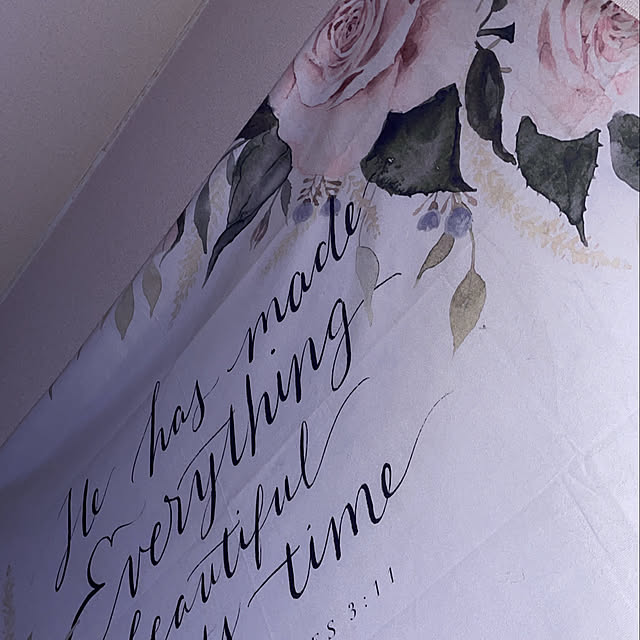 He has made
Everything
beautiful
time
3:11